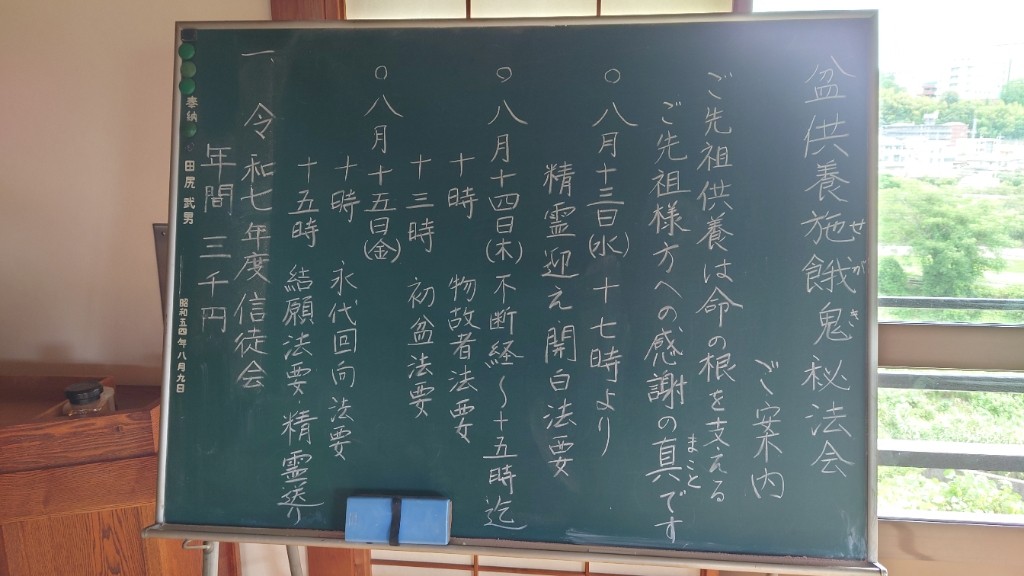 盆供養施餓鬼秘法会
せがき
ご案内
ご先祖供養は命の根を支える
ご先祖様方への感謝の真です
まこと
○八月十三日(水)十七時より
精霊迎え開白法要
○八月十四日(木)不断経〜十五時迄
十時 物故者法要
十三時 初盆法要
○八月十五日(金)
十時 永代回向法要
十五時 結願法要 精霊送り
一、令和七年度信徒会
年間 三千円
奉納 田尻武男
昭和五四年八月九日